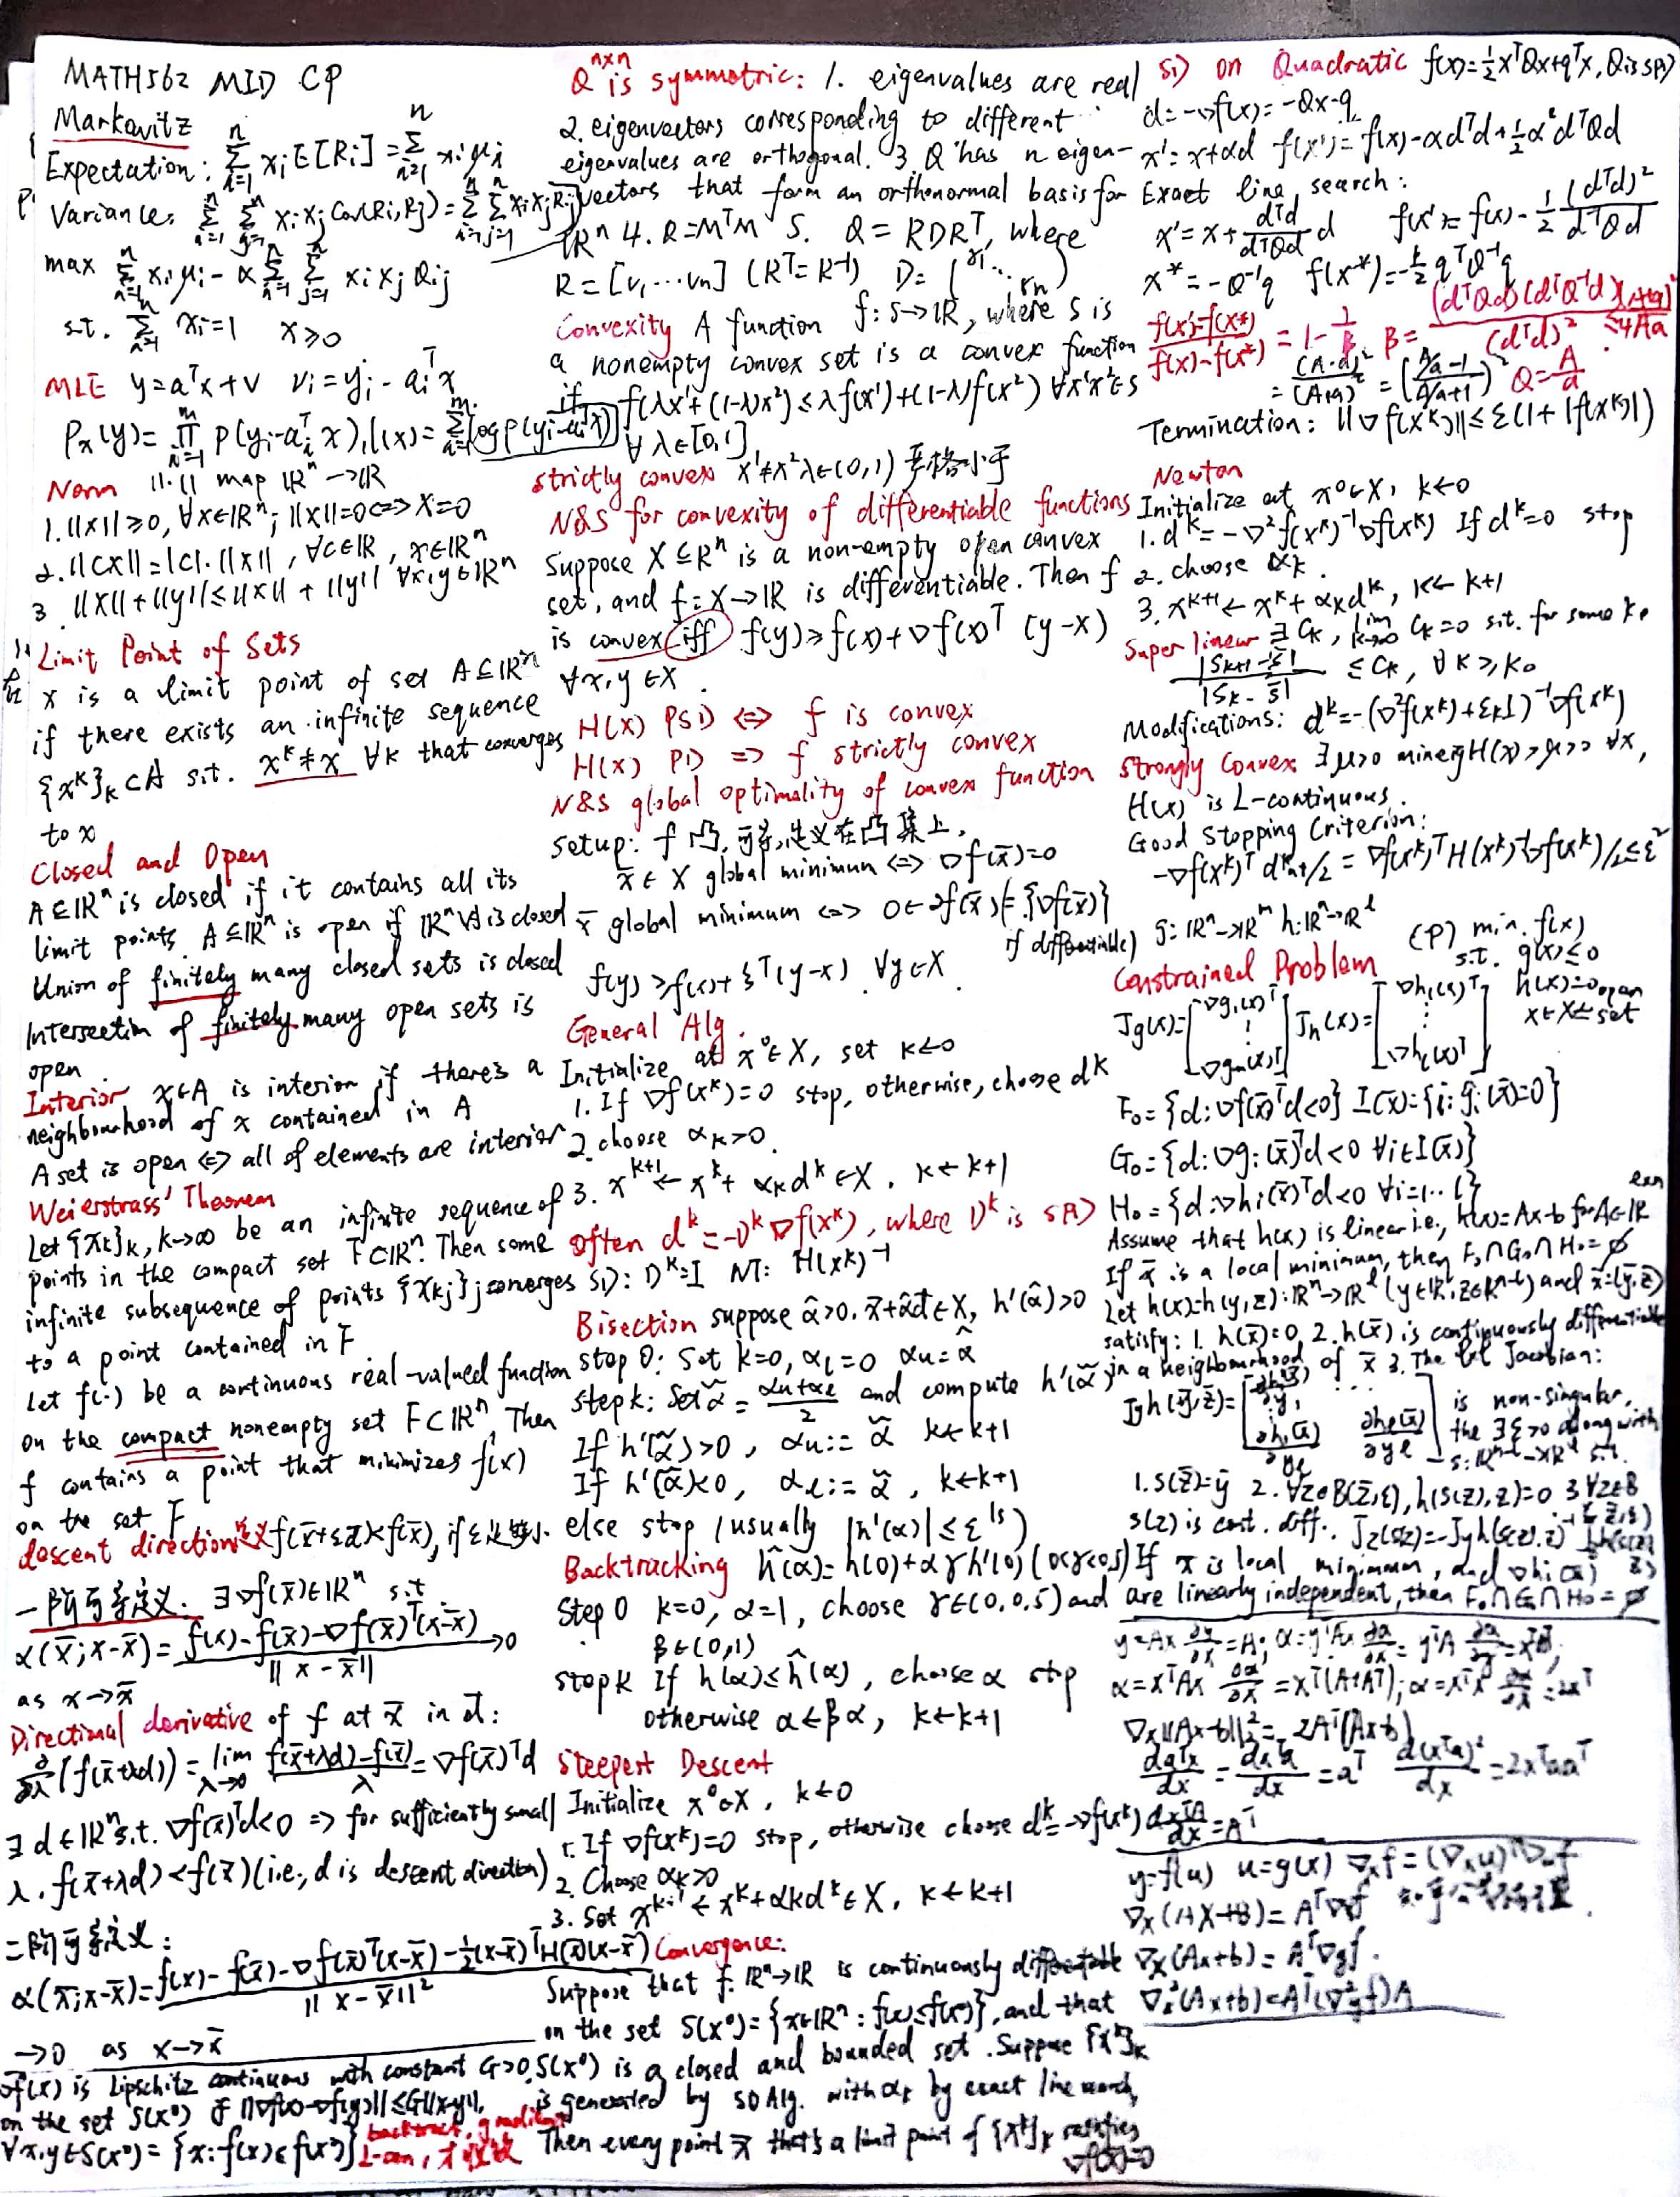 MATH562 MID CP
Markowitz
Expectation: \sum_{i=1}^{n} x_i E[R_i] = \sum_{i=1}^{n} x_i μ_i
Variance: \sum_{i=1}^{n} \sum_{j=1}^{n} x_i x_j Cov(R_i, R_j) = \sum_{i=1}^{n} \sum_{j=1}^{n} x_i x_j R_{ij}
max \sum_{i=1}^{n} x_i μ_i - α \sum_{i=1}^{n} \sum_{j=1}^{n} x_i x_j Q_{ij}
s.t. \sum_{i=1}^{n} x_i = 1 x ≥ 0
MLE y = a^T x + v v_i = y_i - a_i^T x
P_x(y) = \prod_{i=1}^{m} p(y_i - a_i^T x), l(x) = \sum_{i=1}^{m} log p(y_i - a_i^T x)
Norm ||·|| map ℝ^n → ℝ
1. ||x|| ≥ 0, ∀x∈ℝ^n; ||x|| = 0 <=> x = 0
2. ||cx|| = |c|·||x||, ∀c∈ℝ, x∈ℝ^n
3. ||x|| + ||y|| ≤ ||x|| + ||y|| ∀x,y∈ℝ^n
Limit Point of Sets
x is a limit point of set A⊆ℝ^n
if there exists an infinite sequence
{x^k}_k ⊂ A s.t. x^k ≠ x ∀k that converges
to x
Closed and Open
A∈ℝ^n is closed if it contains all its
limit points. A⊆ℝ^n is open if ℝ^n\A is closed
Union of finitely many closed sets is closed
Intersection of finitely many open sets is
open
Interior x∈A is interior if there's a
neighbourhood of x contained in A
A set is open <=> all of elements are interior
Weierstrass' Theorem
Let {x_k}_k, k→∞ be an infinite sequence of
points in the compact set F⊂ℝ^n. Then some
infinite subsequence of points {x_{kj}}_j converges
to a point contained in F
Let f(·) be a continuous real-valued function
on the compact nonempty set F⊂ℝ^n. Then
f contains a point that minimizes f(x)
on the set F
descent direction 定义 f(x̄+εd) < f(x̄), if ε足够小
一阶可导定义. ∃∇f(x̄)∈ℝ^n s.t.
α(x̄; x-x̄) = \frac{f(x) - f(x̄) - ∇f(x̄)^T(x-x̄)}{||x-x̄||} → 0
as x→x̄
Directional derivative of f at x̄ in d:
\frac{∂}{∂λ}(f(x̄+λd)) = \lim_{λ→0} \frac{f(x̄+λd) - f(x̄)}{λ} = ∇f(x̄)^T d
∃ d∈ℝ^n s.t. ∇f(x̄)^T d < 0 => for sufficiently small
λ, f(x̄+λd) < f(x̄) (i.e, d is descent direction)
二阶可导定义:
α(x̄; x-x̄) = \frac{f(x) - f(x̄) - ∇f(x̄)^T(x-x̄) - \frac{1}{2}(x-x̄)^T H(x̄)(x-x̄)}{||x-x̄||^2}
→0 as x→x̄
∇f(x) is Lipschitz continuous with constant G>0,
on the set S(x^0) if ||∇f(x) - ∇f(y)|| ≤ G||x-y||,
∀x,y∈S(x^0) = {x: f(x) ≤ f(x^0)}
Q^{n×n} is symmetric: 1. eigenvalues are real
2. eigenvectors corresponding to different
eigenvalues are orthogonal. 3. Q has n eigen-
vectors that form an orthonormal basis for
ℝ^n 4. Q = M^T M 5. Q = RDR^T, where
R = [v_1 ... v_n] (R^T = R^{-1}) D = (γ_1 ... γ_n)
Convexity A function f: S→ℝ, where S is
a nonempty convex set is a convex function
if f(λx^1 + (1-λ)x^2) ≤ λf(x^1) + (1-λ)f(x^2) ∀x^1 x^2∈S
∀λ∈[0,1]
strictly convex x^1≠x^2 λ∈(0,1) 严格小于
N&S for convexity of differentiable functions
Suppose X⊆R^n is a non-empty open convex
set, and f: X→ℝ is differentiable. Then f
is convex iff f(y) ≥ f(x) + ∇f(x)^T (y-x)
∀x,y∈X.
H(x) PSD <=> f is convex
H(x) PD => f strictly convex
N&S global optimality of convex function
setup: f 凸, 可导, 定义在凸集上.
x̄∈X global minimum <=> ∇f(x̄) = 0
x̄ global minimum <=> 0∈∂f(x̄) (= {∇f(x̄)}
if differentiable)
f(y) ≥ f(x) + ξ^T(y-x) ∀y∈X
General Alg.
Initialize at x^0∈X, set k←0
1. If ∇f(x^k) = 0 stop, otherwise, choose d^k
2. choose α_k > 0
3. x^{k+1} ← x^k + α_k d^k ∈X, k←k+1
often d^k = -D^k ∇f(x^k), where D^k is SPD
SD: D^k = I NT: H(x^k)^{-1}
Bisection suppose α̂>0. x̄+α̂d∈X, h'(α̂)>0
step 0: Set k=0, α_l=0 α_u=α̂
step k: Set α̃ = \frac{α_u+α_l}{2} and compute h'(α̃)
If h'(α̃)>0, α_u := α̃ k←k+1
If h'(α̃)<0, α_l := α̃, k←k+1
else stop (usually |h'(α)| ≤ ε's)
Backtracking ĥ(α) = h(0) + αγh'(0) (0<γ<0.5)
Step 0 k=0, α=1, choose γ∈(0,0.5) and
β∈(0,1)
step k If h(α) ≤ ĥ(α), choose α stop
otherwise α←βα, k←k+1
Steepest Descent
Initialize x^0∈X, k←0
1. If ∇f(x^k)=0 stop, otherwise choose d^k=-∇f(x^k)
2. Choose α_k>0
3. Set x^{k+1} ← x^k + α_k d^k∈X, k←k+1
Convergence:
Suppose that f: ℝ^n→ℝ is continuously differentiable
on the set S(x^0) = {x∈ℝ^n : f(x) ≤ f(x^0)}, and that
S(x^0) is a closed and bounded set. Suppose {x^k}_k
is generated by SD Alg. with α_k by exact line search,
Then every point x̄ that's a limit point of {x^k}_k satisfies
∇f(x̄)=0
SD on Quadratic f(x) = \frac{1}{2}x^T Qx + q^T x, Q is SPD
d = -∇f(x) = -Qx - q
x' = x+αd f(x') = f(x) - αd^T d + \frac{1}{2}α^2 d^T Qd
Exact line search:
x' = x + \frac{d^T d}{d^T Qd} d f(x') = f(x) - \frac{1}{2} \frac{(d^T d)^2}{d^T Qd}
x* = -Q^{-1}q f(x*) = -\frac{1}{2} q^T Q^{-1} q
\frac{f(x')-f(x*)}{f(x)-f(x*)} = 1 - \frac{1}{β} β = \frac{(d^T Qd)(d^T Q^{-1}d)}{(d^T d)^2} ≤ \frac{(A+a)^2}{4Aa}
= \frac{(A-a)^2}{(A+a)^2} = (\frac{A/a-1}{A/a+1})^2 Q = \frac{A}{a}
Termination: ||∇f(x^k)|| ≤ ε(1 + |f(x^k)|)
Newton
Initialize at x^0∈X, k←0
1. d^k = -∇^2 f(x^k)^{-1} ∇f(x^k) If d^k=0 stop
2. choose α_k.
3. x^{k+1} ← x^k + α_k d^k, k←k+1
Superlinear ∃ C_k, \lim_{k→∞} C_k=0 s.t. for some k_0
\frac{|S_{k+1} - s̄|}{|S_k - s̄|} ≤ C_k, ∀k ≥ k_0
Modifications: d^k = -(∇^2 f(x^k) + ε_k I)^{-1} ∇f(x^k)
Strongly Convex ∃μ>0 mineigH(x) > μ > 0 ∀x,
H(x) is L-continuous.
Good Stopping Criterion:
-∇f(x^k)^T d^k_{nt}/2 = ∇f(x^k)^T H(x^k)^{-1} ∇f(x^k)/2 ≤ ε^2
g: ℝ^n→ℝ^m h: ℝ^n→ℝ^l
(P) min. f(x)
s.t. g(x) ≤ 0
h(x)=0
x∈X ← open set
Constrained Problem
J_g(x) = [∇g_1(x)^T ⋮ ∇g_m(x)^T] J_h(x) = [∇h_1(x)^T ⋮ ∇h_l(x)^T]
F_0 = {d: ∇f(x̄)^T d<0} I(x̄) = {i: g_i(x̄)=0}
G_0 = {d: ∇g_i(x̄)^T d<0 ∀i∈I(x̄)}
H_0 = {d: ∇h_i(x̄)^T d<0 ∀i=1...l}
Assume that h(x) is linear i.e., h(x)=Ax-b for A∈ℝ^{l×n}
If x̄ is a local minimum, then F_0∩G_0∩H_0=∅
Let h(x)=h(y,z): ℝ^n→ℝ^l (y∈ℝ^l, z∈ℝ^{n-l}) and x̄=(ȳ,z̄)
satisfy: 1. h(x̄)=0, 2. h(x̄) is continuously differentiable
in a neighbourhood of x̄ 3. The l×l Jacobian:
J_y h(ȳ,z̄) = is non-singular,
the ∃ε>0 along with
s: ℝ^{n-l}→ℝ^l s.t.
1. s(z̄)=ȳ 2. ∀z∈B(z̄,ε), h(s(z),z)=0 3 ∀z∈B(z̄,ε)
s(z) is cont. diff.
If x̄ is local minimum, and ∇h_i(x̄)
are linearly independent, then F_0∩G_0∩H_0=∅
y=Ax \frac{∂y}{∂x}=A; α=y^T Ax \frac{∂α}{∂x}=y^T A
α=x^T Ax \frac{∂α}{∂x}=x^T(A+A^T); α=x^T x \frac{∂α}{∂x}=2x^T
∇_x||Ax-b||_2^2 = 2A^T(Ax-b)
\frac{da^T x}{dx} = \frac{dx^T a}{dx} = a^T \frac{d(x^T a)^2}{dx} = 2x^T aa^T
\frac{dx^T A}{dx} = A^T
y=f(u) u=g(x) ∇_x f = (∇_x u)^T ∇_u f
∇_x(Ax+b) = A^T ∇f
∇_x(Ax+b) = A^T ∇_y f.
∇_x^2(Ax+b) = A^T(∇_y^2 f)A